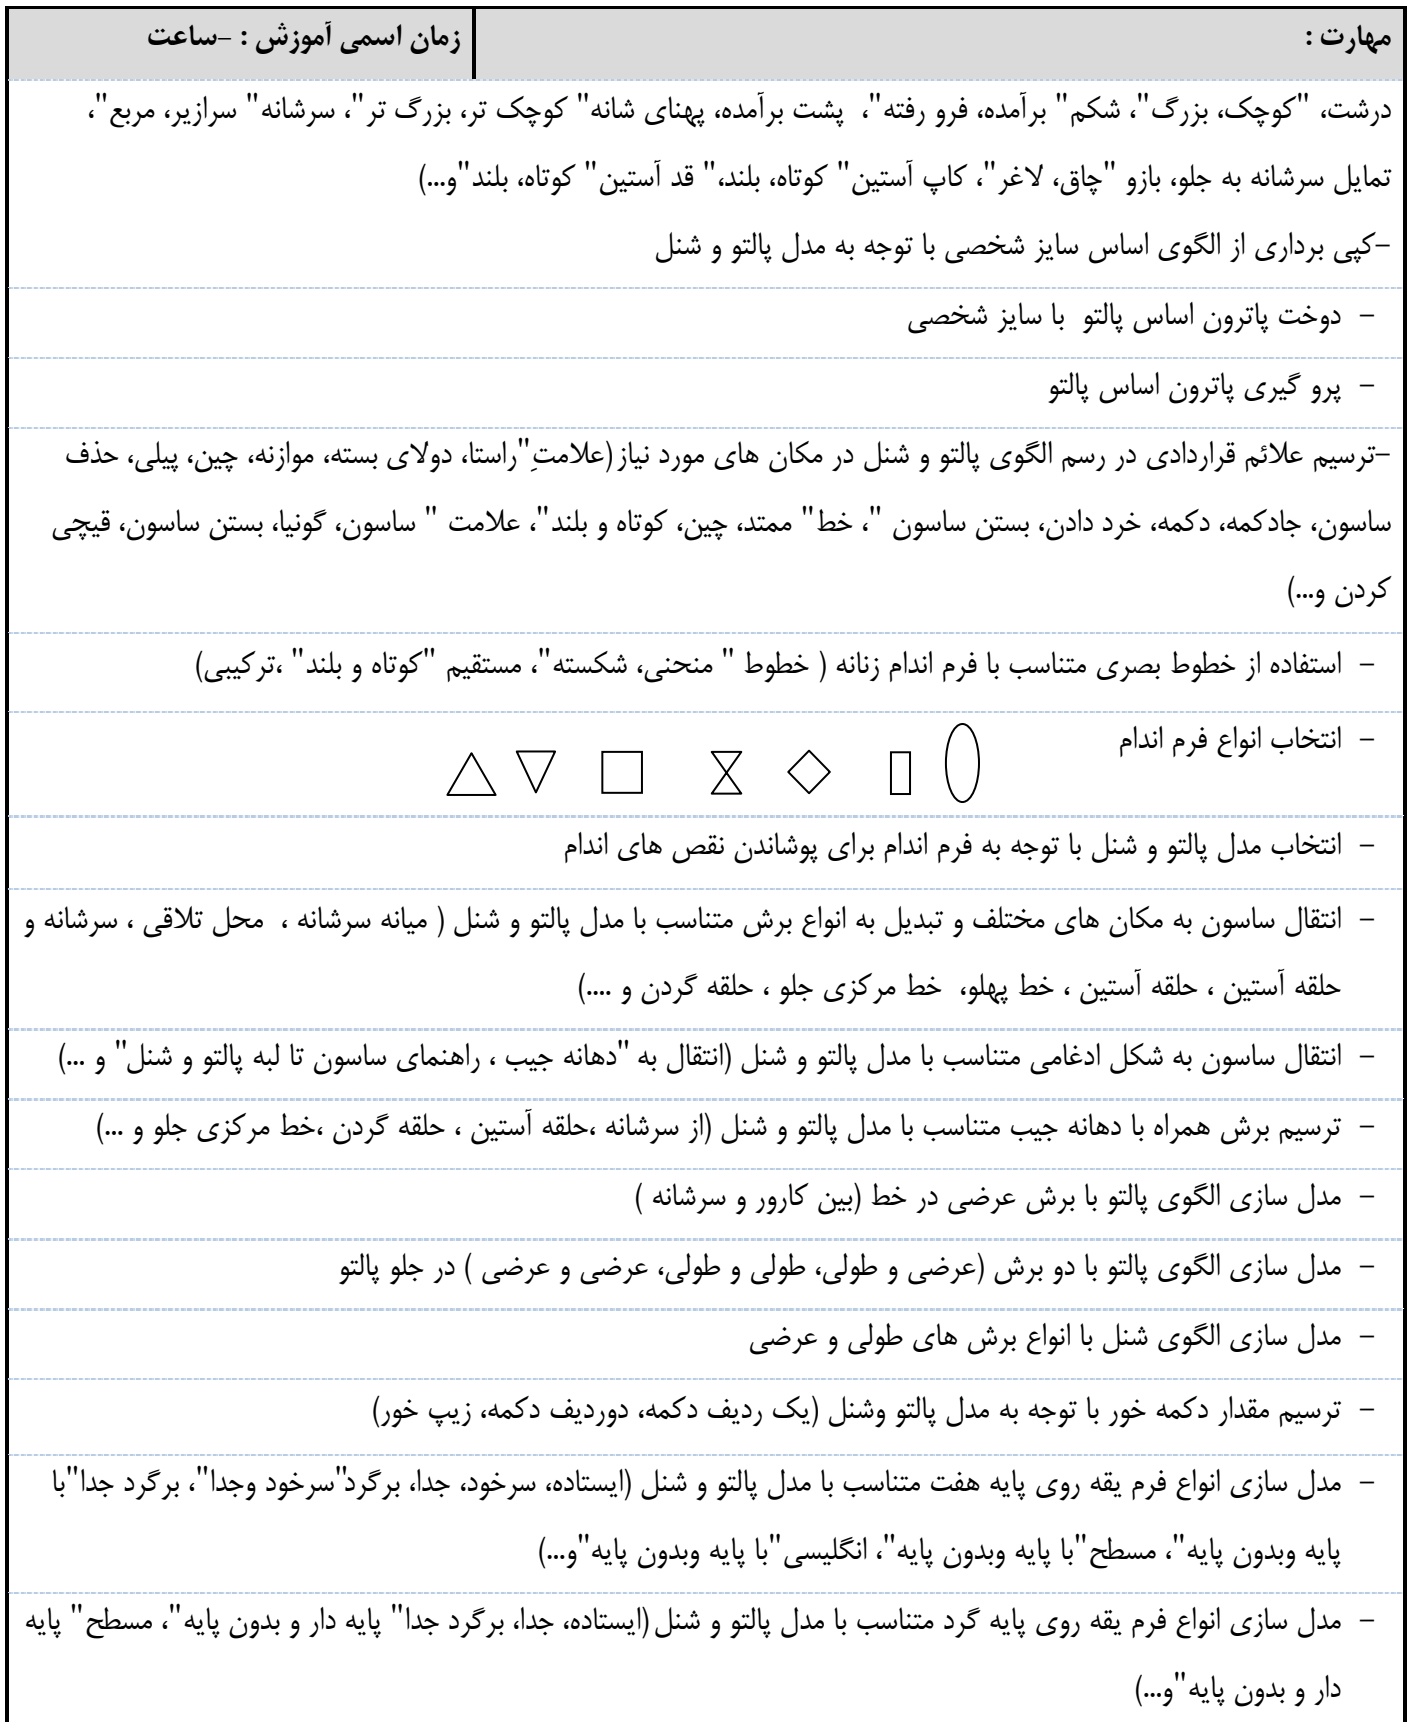 مهارت :
زمان اسمی آموزش : -ساعت
درشت، "کوچک، بزرگ"، شکم" برآمده، فرو رفته"، پشت برآمده، پهنای شانه" کوچک تر، بزرگ تر"، سرشانه" سرازیر، مربع"،
تمایل سرشانه به جلو، بازو "چاق، لاغر"، کاپ آستین" کوتاه، بلند،" قد آستین" کوتاه، بلند"و...)
-کپی برداری از الگوی اساس سایز شخصی با توجه به مدل پالتو و شنل
- دوخت پاترون اساس پالتو با سایز شخصی
- پرو گیری پاترون اساس پالتو
-ترسیم علائم قراردادی در رسم الگوی پالتو و شنل در مکان های مورد نیاز(علامتِ"راستا، دولای بسته، موازنه، چین، پیلی، حذف
ساسون، جادکمه، دکمه، خرد دادن، بستن ساسون "، خط" ممتد، چین، کوتاه و بلند"، علامت " ساسون، گونیا، بستن ساسون، قیچی
کردن و...)
- استفاده از خطوط بصری متناسب با فرم اندام زنانه ( خطوط " منحنی، شکسته"، مستقیم "کوتاه و بلند" ،ترکیبی)
- انتخاب انواع فرم اندام
- انتخاب مدل پالتو و شنل با توجه به فرم اندام برای پوشاندن نقص های اندام
- انتقال ساسون به مکان های مختلف و تبدیل به انواع برش متناسب با مدل پالتو و شنل ( میانه سرشانه ، محل تلاقی ، سرشانه و
حلقه آستین ، حلقه آستین ، خط پهلو، خط مرکزی جلو ، حلقه گردن و ....)
- انتقال ساسون به شکل ادغامی متناسب با مدل پالتو و شنل (انتقال به "دهانه جیب ، راهنمای ساسون تا لبه پالتو و شنل" و ...)
- ترسیم برش همراه با دهانه جیب متناسب با مدل پالتو و شنل (از سرشانه ،حلقه آستین ، حلقه گردن ،خط مرکزی جلو و ...)
- مدل سازی الگوی پالتو با برش عرضی در خط (بین کارور و سرشانه )
- مدل سازی الگوی پالتو با دو برش (عرضی و طولی، طولی و طولی، عرضی و عرضی ) در جلو پالتو
- مدل سازی الگوی شنل با انواع برش های طولی و عرضی
- ترسیم مقدار دکمه خور با توجه به مدل پالتو وشنل (یک ردیف دکمه، دوردیف دکمه، زیپ خور)
- مدل سازی انواع فرم یقه روی پایه هفت متناسب با مدل پالتو و شنل (ایستاده، سرخود، جدا، برگرد"سرخود وجدا"، برگرد جدا"با
پایه وبدون پایه"، مسطح"با پایه وبدون پایه"، انگلیسی"با پایه وبدون پایه"و...)
- مدل سازی انواع فرم یقه روی پایه گرد متناسب با مدل پالتو و شنل(ایستاده، جدا، برگرد جدا" پایه دار و بدون پایه"، مسطح" پایه
دار و بدون پایه"و...)